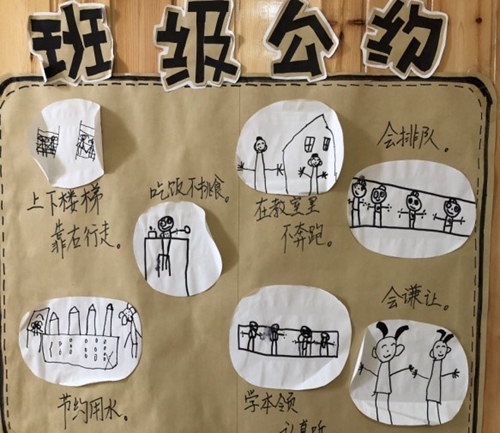 班级公约
上下楼梯
靠右行走。
吃饭不挑食。
在教室里
不奔跑。
会排队。
节约用水。
学本领
认真听
会谦让。